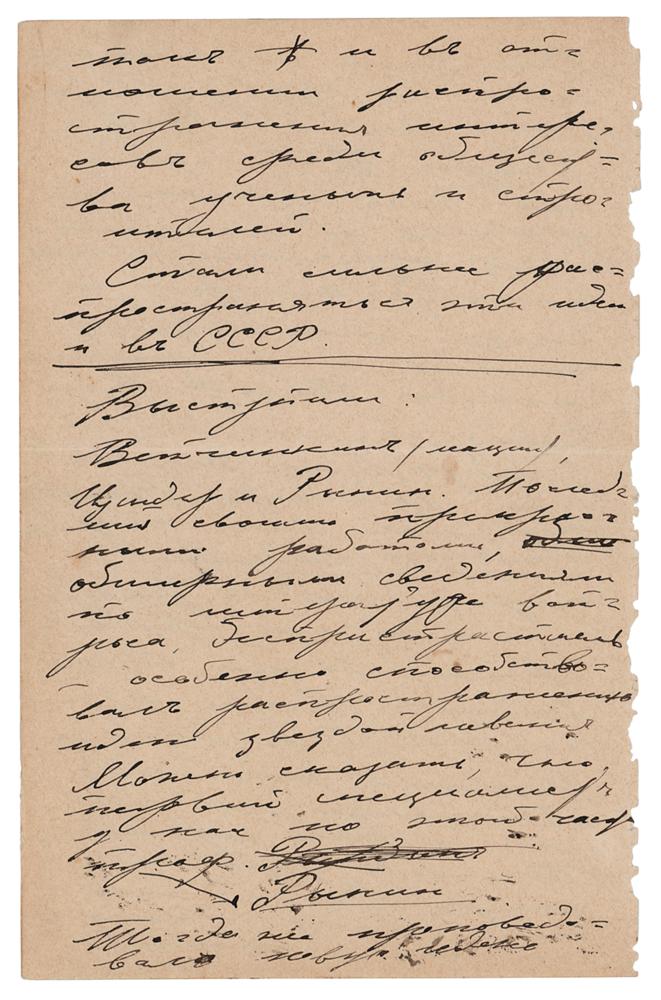 томъ и въ от=
ношении распро=
странения интере=
совъ среди общест=
ва ученыхъ и стро=
ителей.
Стали сильнее рас=
пространяться эти идеи
и въ СССР.
Выступили:
Ветчинкинъ
Цандер и Рынин. Послед=
ний своими прекрас=
ными работами,
обширными сведениями
по литературе воп=
роса, беспристрастиемъ
особенно способство=
валъ распространению
идеи звездоплавания
Можно сказать, что
первый специалист
у нас по этой части
проф.
Рынин
Тогда же проповедо=
вал новую идею